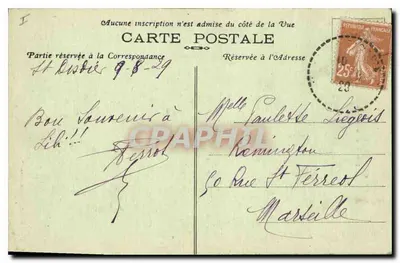 I
Aucune inscription n'est admise du côté de la Vue
CARTE POSTALE
Partie réservée à la Correspondance
Réservée à l'Adresse
St Disdier 9-8-29
Bon Souvenir à
Lili!!!
Melle Paulette Liégeois
Remington
50 Rue St Férreol
Marseille
25
29
CARTAPHILIA